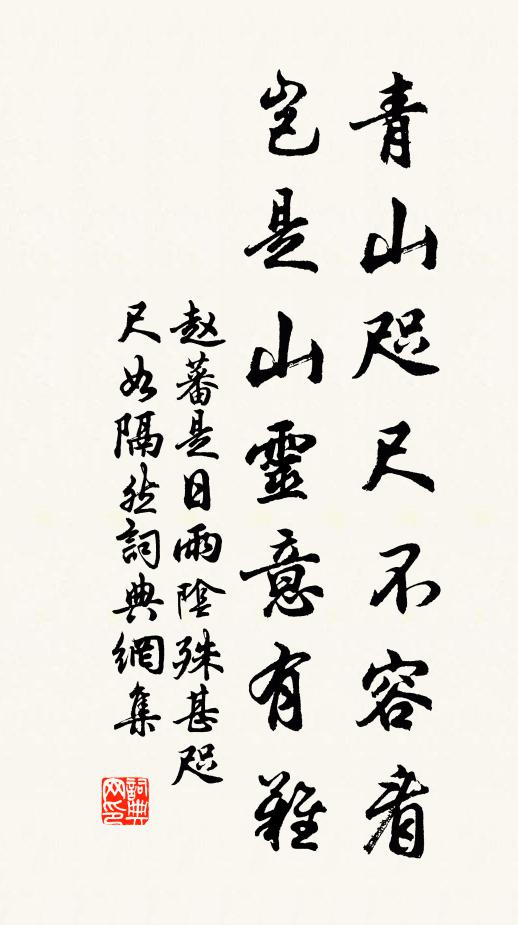 青山咫尺不容看
岂是山靈意有難
赵蕃是日雨陰殊甚咫
尺如隔然詞典網集
詞典
网印